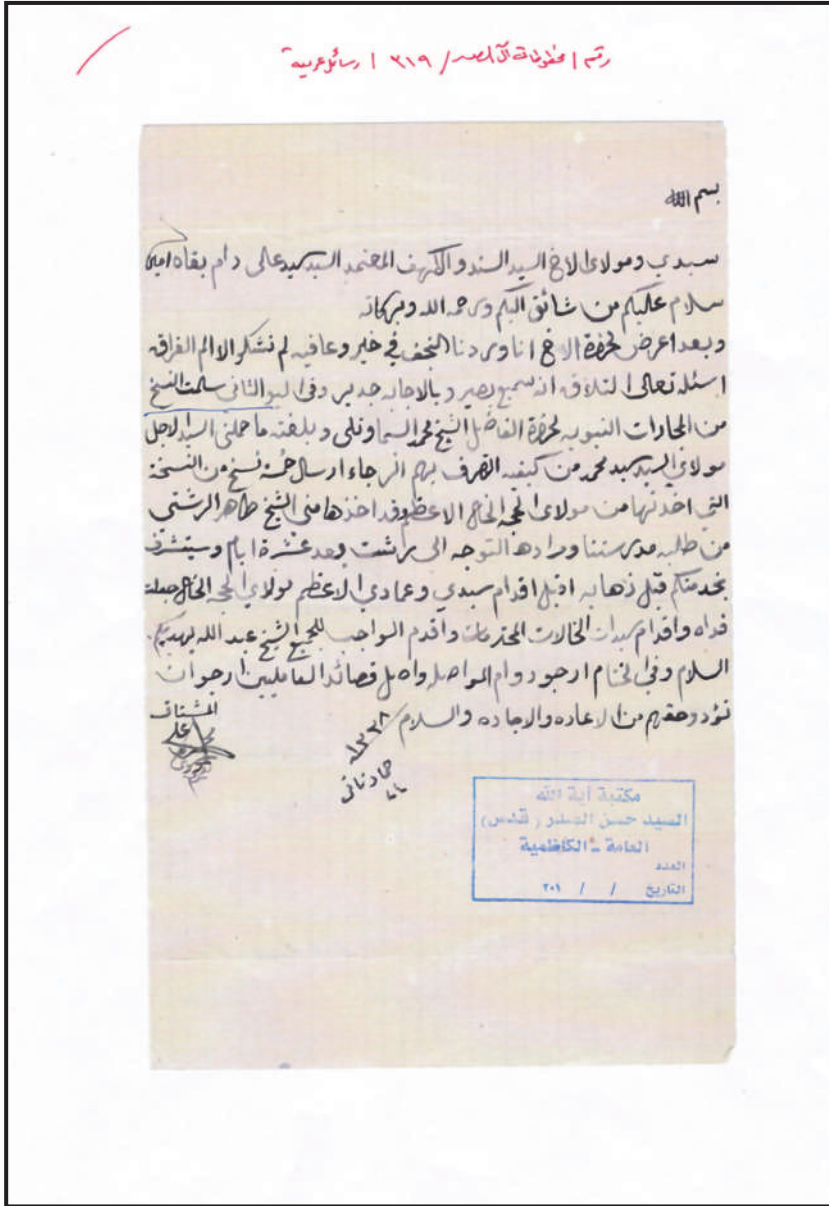 رقم / مخطوطات آل الصدر / ٣١٩ / رسائل عربية
بسم الله
سيدي ومولاي الاخ السيد السند والكهف المعتمد السيد سيد علي دام بقاه امين
سلام عليكم من شائق اليكم ورحمة الله وبركاته
وبعد اعرض لحضرة الاخ انا وردنا النجف في خير وعافيه لم نشكر الا الم الفراق
اسئله تعالى التلاقي انه سميع بصير وبالاجابه جدير وفي اليوم الثاني سلمت النسخ
من المجازات النبويه لحضرة الفاضل الشيخ محمد السماوي وبلغته ما حملني السيد الاجل
مولاي السيد سيد محمد من كيفيه التصرف بهم الرجاء ارسال خمسة نسخ من النسخة
التي اخذتها من مولاي الحجه الخال الاعظم وقد اخذها مني الشيخ طاهر الرشتي
من طلبه مدرستنا ومراده التوجه الى رشت وبعد عشرة ايام وسيتشرف
بخدمتكم قبل ذهابه اقبل اقدام سيدي وعمادي الاعظم مولاي الحجه الخال جعلت
فداه واقدام سيدات الخالات المحترمات واقدم الواجب للجميع الشيخ عبد الله يهديكم
السلام وفي الختام ارجو دوام المواصله واصل قصائد العامليين ارجو ان
تؤدو حقهم من الاعاده والاجاده والسلام
المشتاق
علي
١٣٣٨
جماد ثاني
مكتبة آية الله
السيد حسن الصدر (قدس)
العامة - الكاظمية
العدد
التاريخ / / ٢٠١